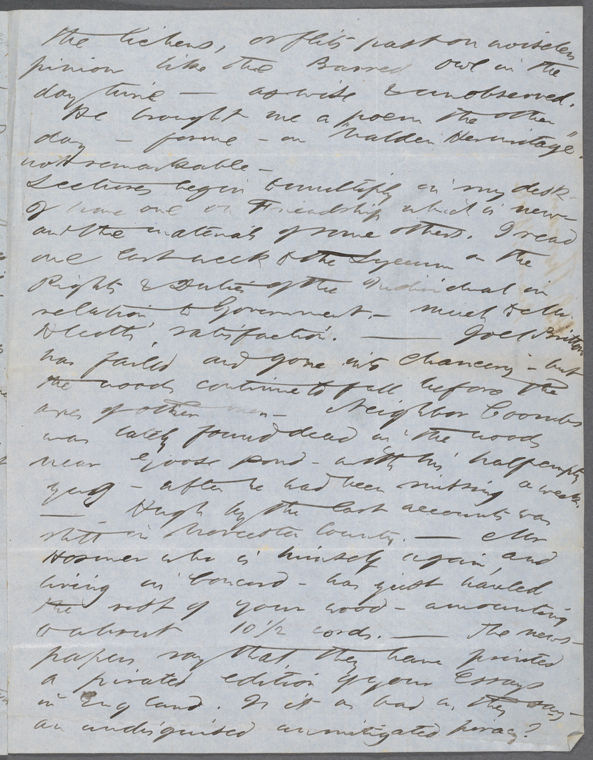 the lichens, or flits past on noiseless
pinion like the Barred owl in the
day time — as wise & unobserved.
He brought me a poem the other
day — for me — on Walden Hermitage".
not remarkable —
Lectures begin to multiply on my desk
I have one on Friendship which is new
and the materials of some others. I read
one last week to the Lyceum on the
Rights & Duties of the Individual in
relation to Government — much to Mr
Alcott's satisfaction. — Joel Britton
has failed and gone into chancery — but
the woods continue to fall before the
axes of other men — Neighbor Coombs
was lately found dead in the woods
near Goose Pond — with his half empty
jug — after he had been missing a week.
— Hugh by the last accounts was
still in Worcester County. — Mr
Hosmer who is himself again, and
living in Concord — has just hauled
the rest of your wood — amounting
to about 10 1/2 cords. — The news—
papers say that they have printed
a pirated edition of your Essays
in England. Is it as bad as they say—
an undisguised unmitigated piracy?